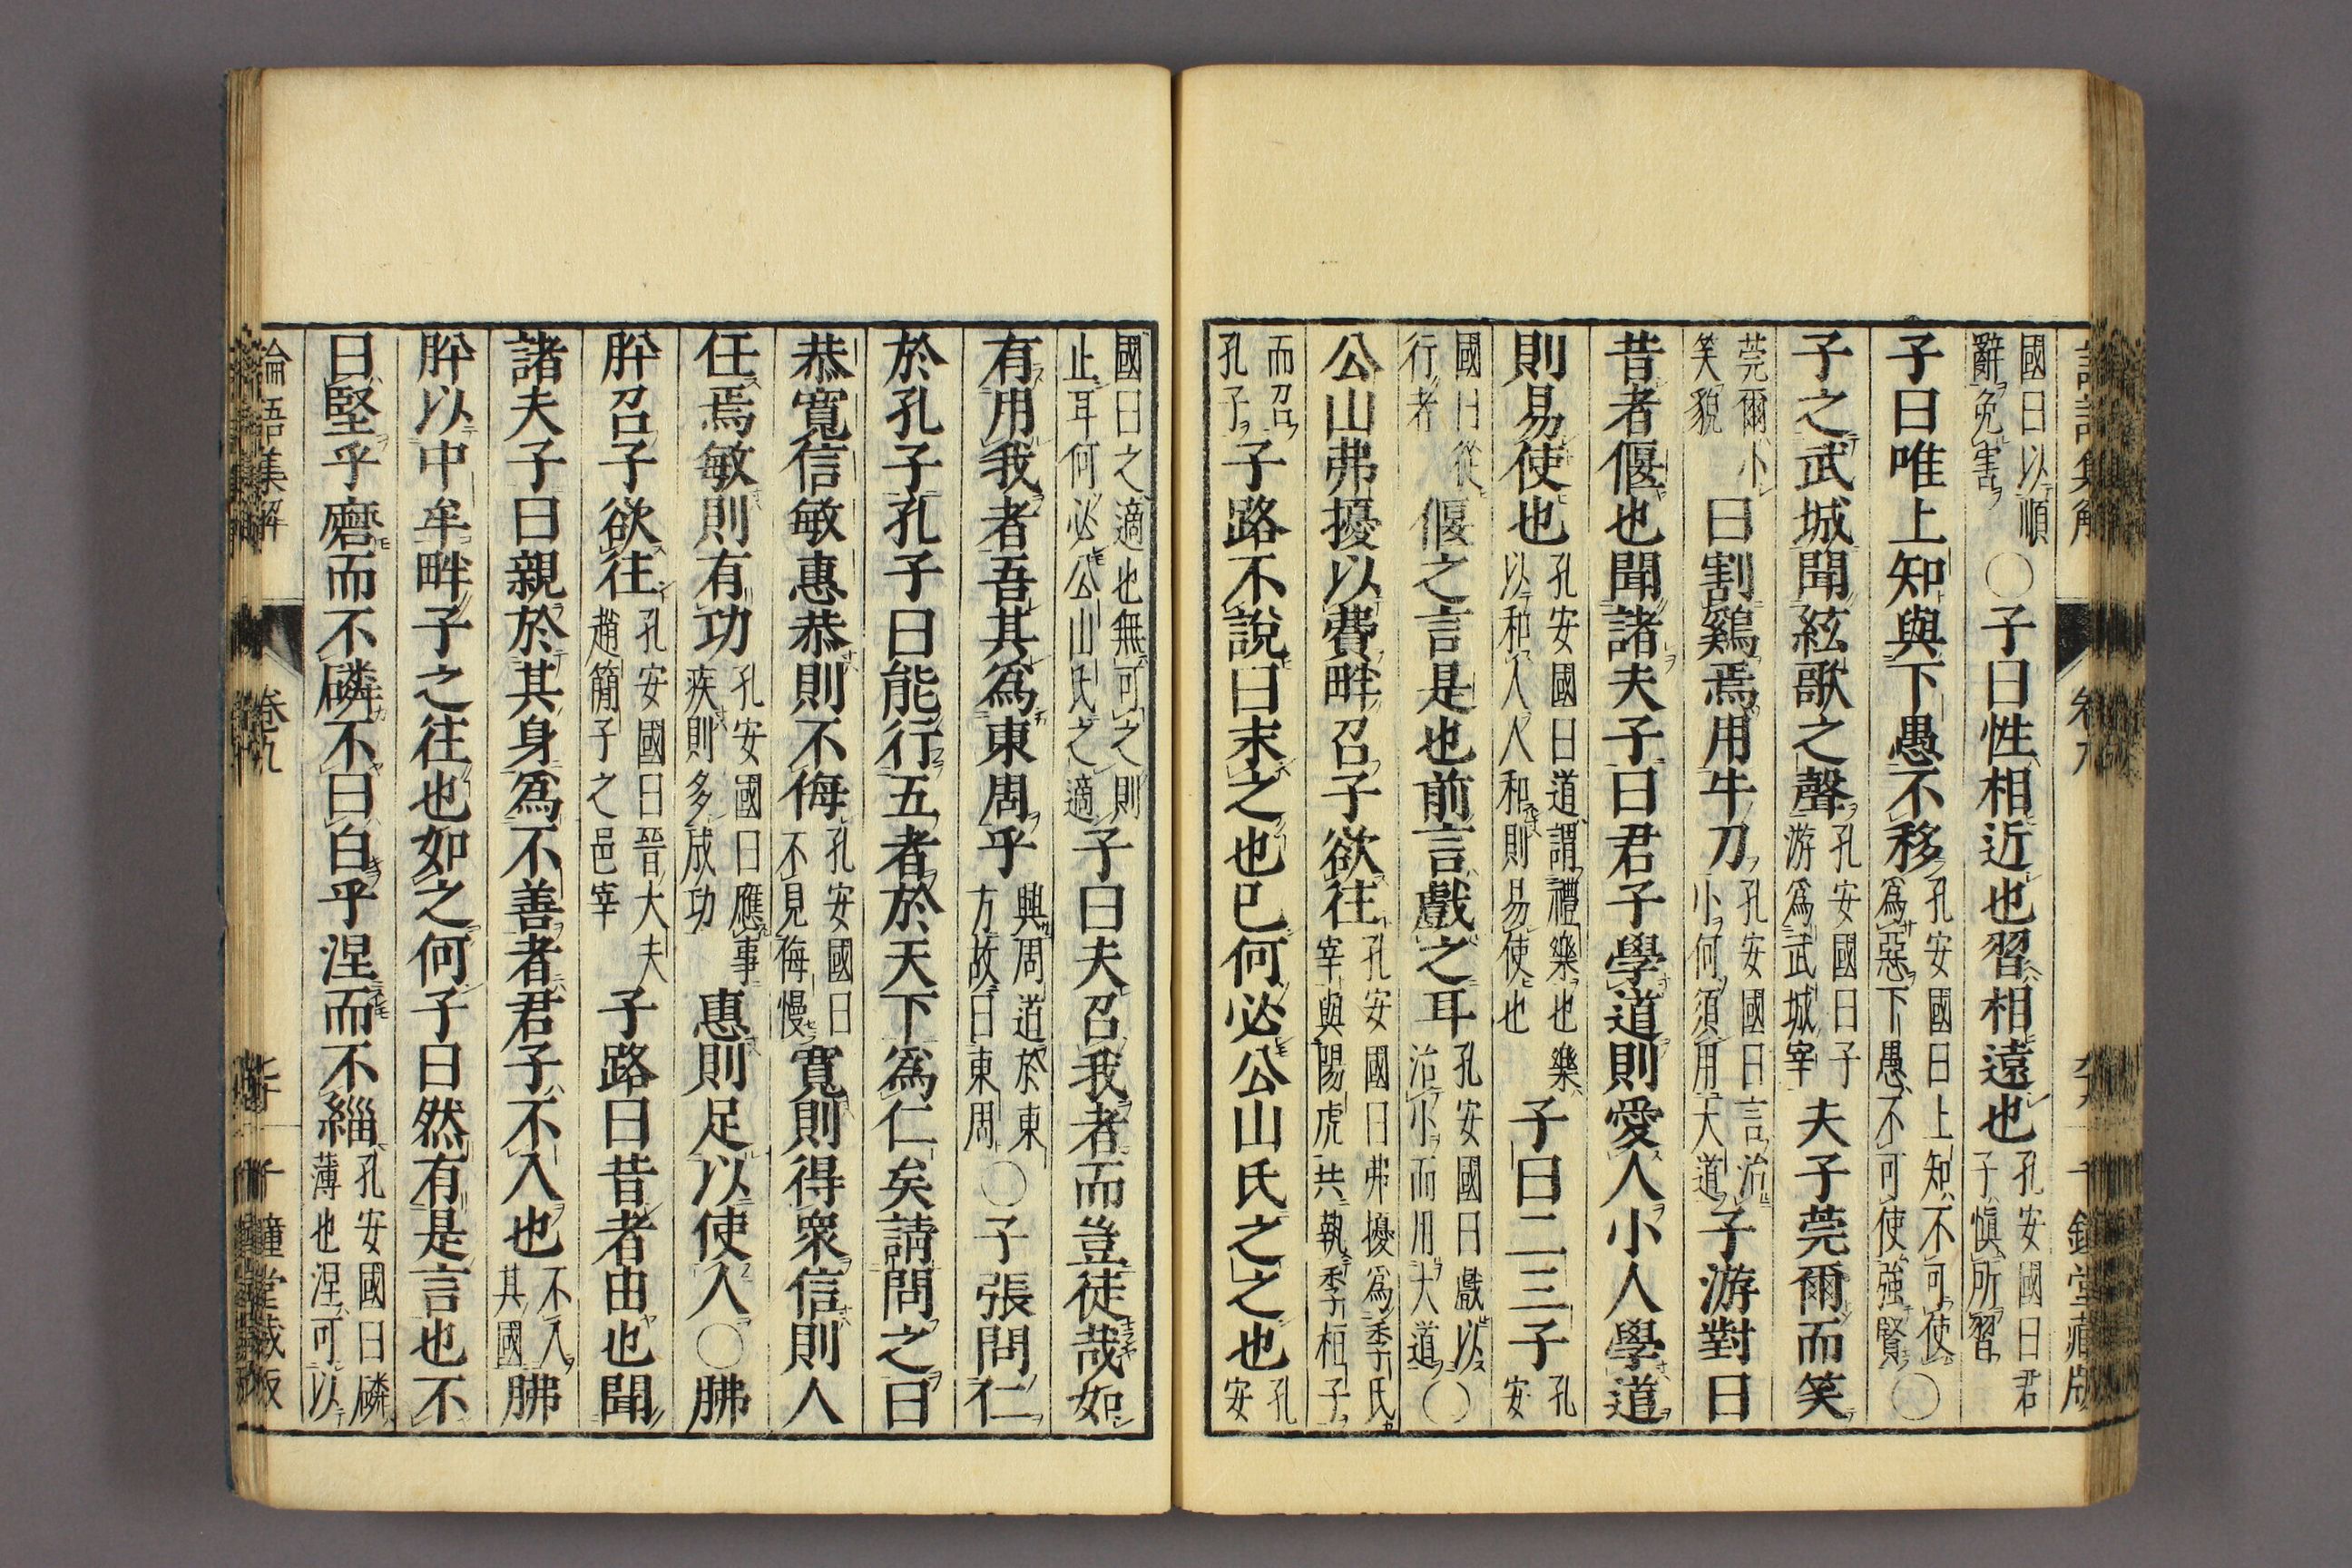 國曰以順辭免害○子曰性相近也習相遠也孔安國曰君子愼所習
子曰唯上知與下愚不移孔安國曰上知不可使爲惡下愚不可使強賢○
子之武城聞絃歌之聲孔安國曰子游爲武城宰夫子莞爾而笑
莞爾小笑貌曰割鷄焉用牛刀孔安國曰言治小何須用大道子游對曰
昔者偃也聞諸夫子曰君子學道則愛人小人學道
則易使也孔安國曰道謂禮樂也樂以和人人和則易使也子曰二三子孔安
國曰從行者偃之言是也前言戲之耳孔安國曰戲以治小而用大道○
公山弗擾以費畔召子欲往孔安國曰弗擾爲季氏宰與陽虎共執季桓子
而召孔子子路不說曰末之也已何必公山氏之之也孔安
國曰之適也無可之則止耳何必公山氏之適子曰夫召我者而豈徒哉如
有用我者吾其爲東周乎興周道於東方故曰東周○子張問仁
於孔子孔子曰能行五者於天下爲仁矣請問之曰
恭寬信敏惠恭則不侮孔安國曰不見侮慢寬則得衆信則人
任焉敏則有功孔安國曰應事疾則多成功惠則足以使人○胇
肸召子欲往孔安國曰晉大夫趙簡子之邑宰子路曰昔者由也聞
諸夫子曰親於其身爲不善者君子不入也不入其國胇
肸以中牟畔子之往也如之何子曰然有是言也不
曰堅乎磨而不磷不曰白乎涅而不緇孔安國曰磷薄也涅可以
論語集解 卷九 千鍾堂藏板